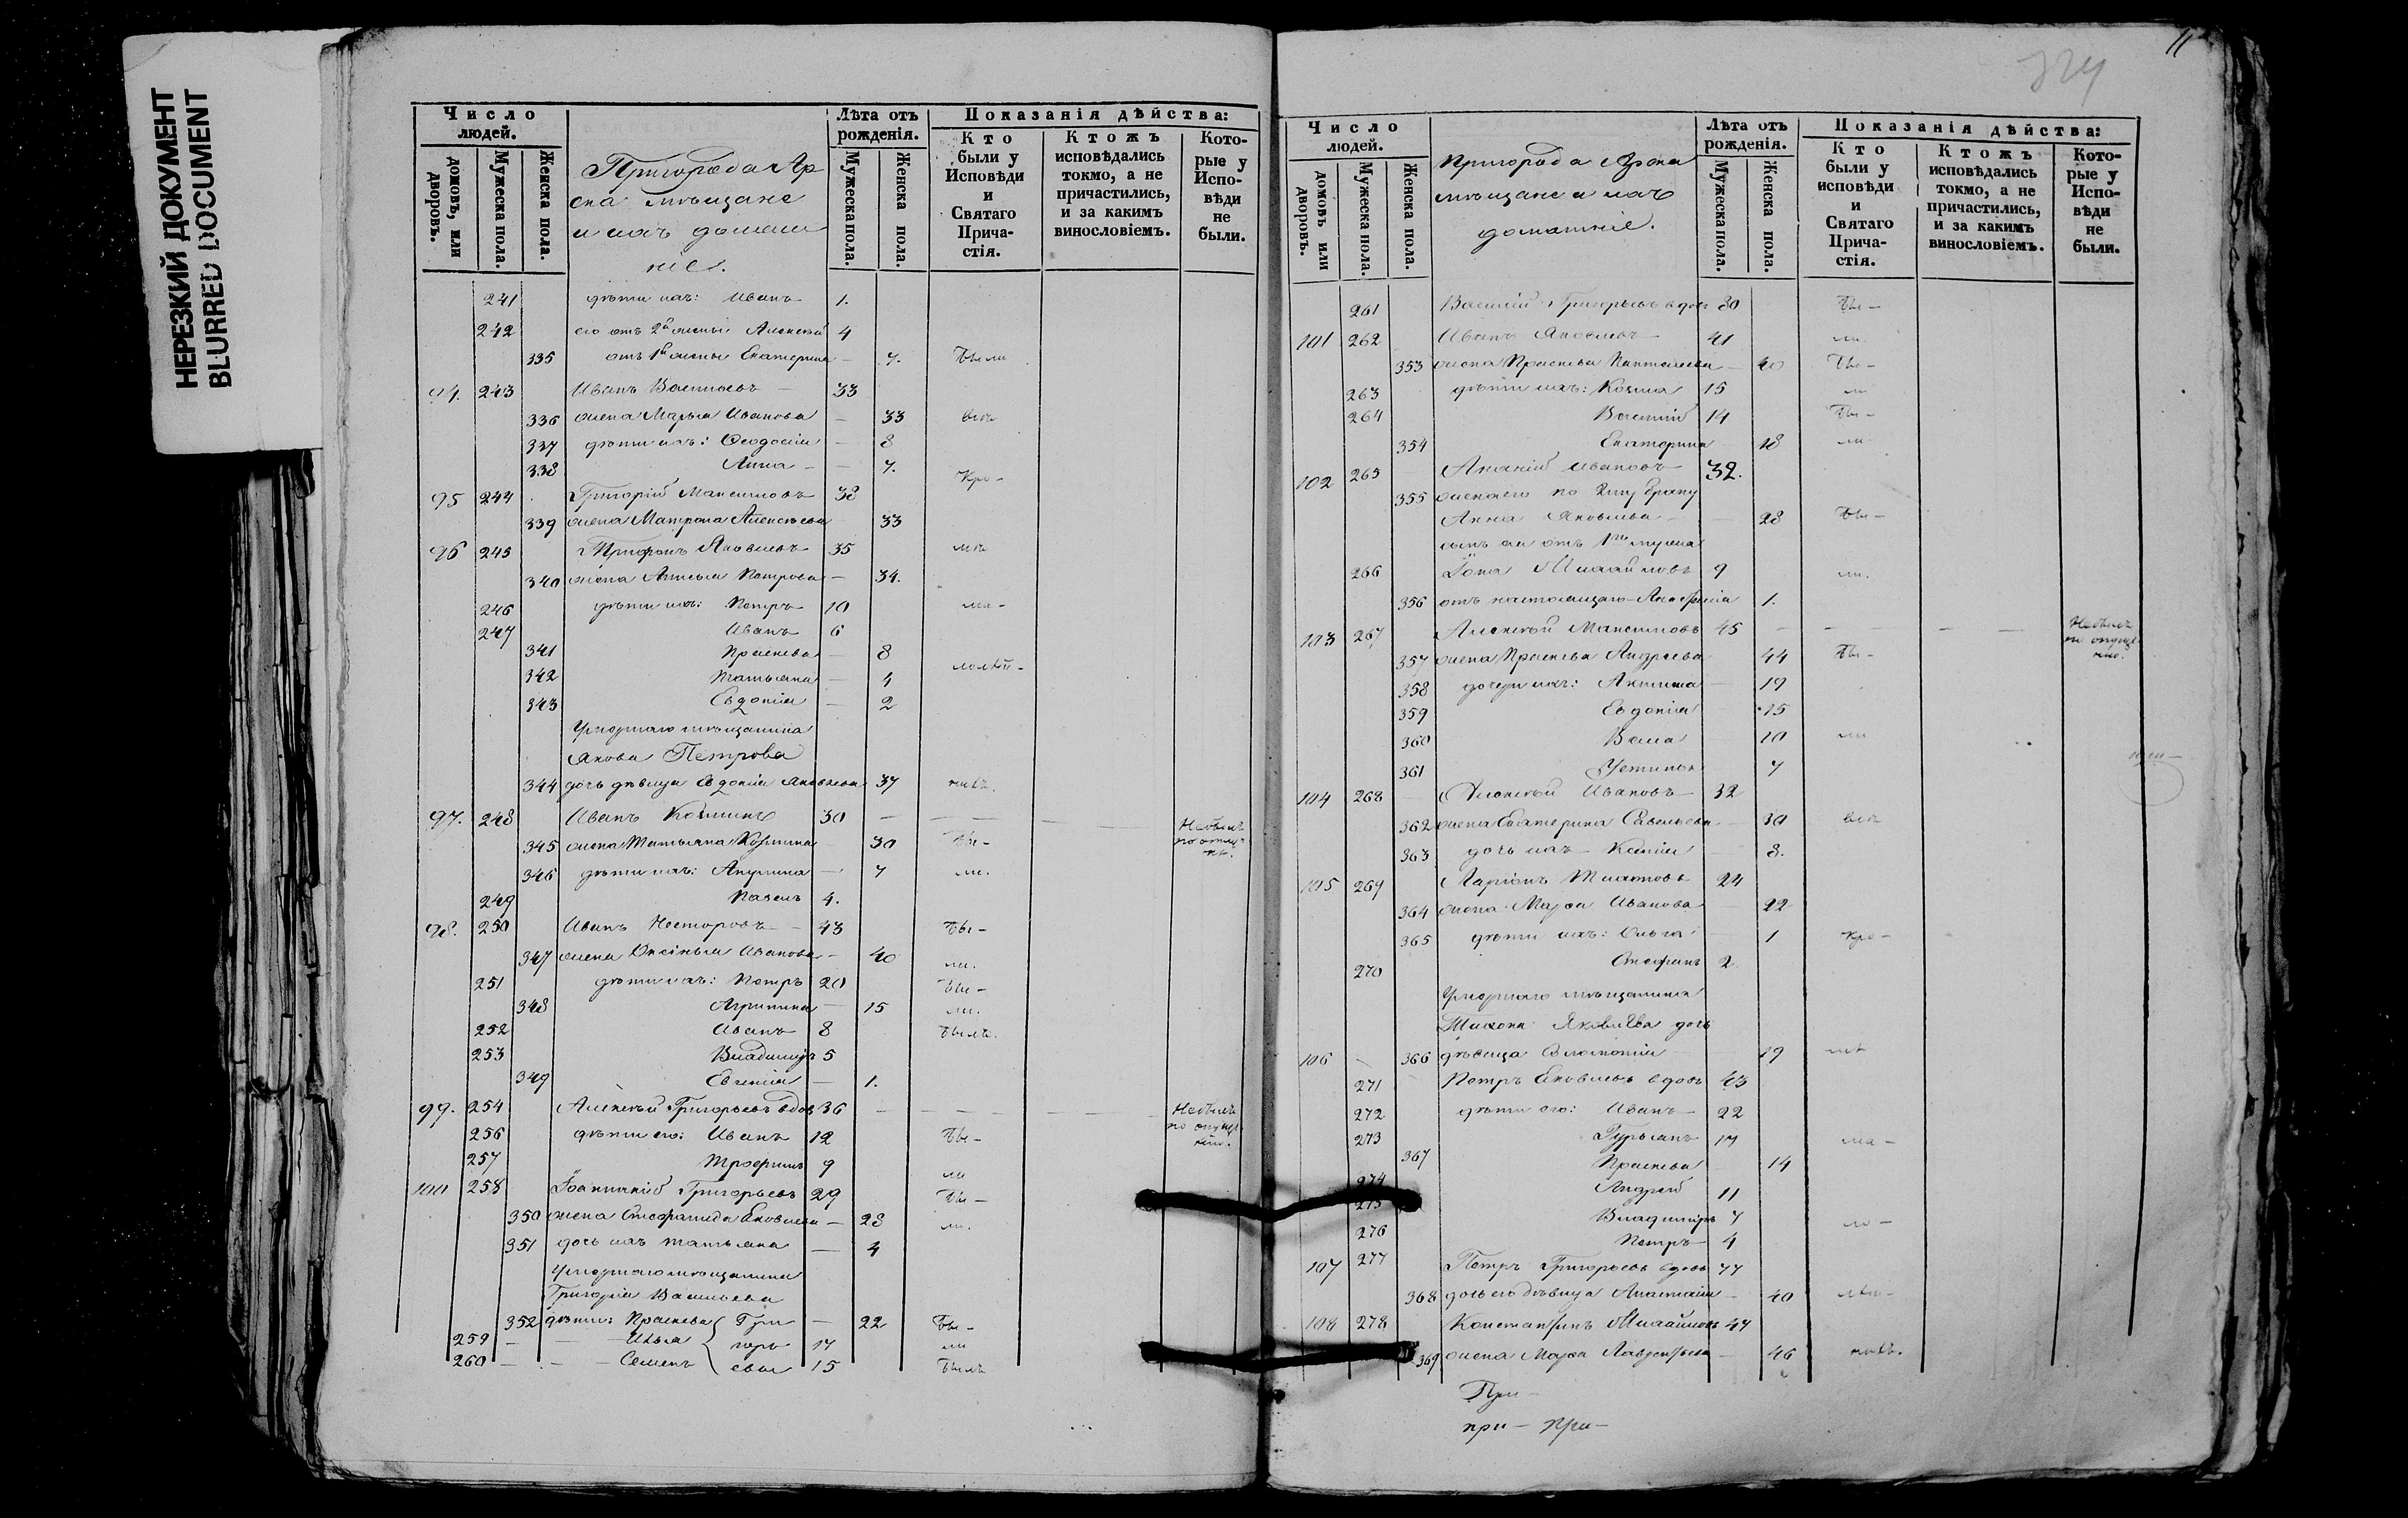 НЕРЕЗКИЙ ДОКУМЕНТ
BLURRED DOCUMENT
Число людей.
домовъ, или дворовъ.
Мужеска пола.
Женска пола.
Пригорода Ар
ска мѣщане
и ихъ домаш
ніе.
Лѣта отъ рожденія.
Мужеска пола.
Женска пола.
Показанія дѣйства:
Кто были у Исповѣди и Святаго Прича-стія.
Ктожъ исповѣдались токмо, а не причастились, и за какимъ винословіемъ.
Кото-рые у Испо-вѣди не были.
241 дѣти ихъ: Иванъ 1.
242 его отъ 2й жены Алексѣй 4
335 отъ 1й жены Екатерина – 7. Были
94. 243 Иванъ Васильевъ – 33
336 жена Марья Иванова – 33
337 дѣти ихъ: Феодосія – 8
338 Анна – – 7.
95 244 Григорій Максимовъ 38 Кро–
339 жена Матрона Алексѣева 33
96 245 Трифонъ Яковлевъ 35
340 жена Анисья Петрова – 34.
246 дѣти ихъ: Петръ 10
247 Иванъ 6
341 Прасковья – 8
342 Татьяна – 4
343 Евдокія – 2
Умершаго мѣщанина
Якова Петрова
344 дочь дѣвица Евдокія Яковлева 37
97. 248 Иванъ Козминъ 30 – Небылъ по отлуч-кѣ.
345 жена Татьяна 30 Бы–
346 дѣти ихъ: Акулина – 7 ли.
249 Павелъ 4.
98. 250 Иванъ Несторовъ – 43 Бы–
347 жена Ксенья Иванова – 40 ли.
251 дѣти ихъ: Петръ 20 Бы–
348 Агрипина – 15 ли.
252 Иванъ 8 Былъ.
253 Владимиръ 5
349 Евгенія – 1.
99. 254 Алексѣй Григорьевъ вдов 36 – Небылъ по опущенію.
256 дѣти его: Иванъ 12 Бы–
257 Трофимъ 9 ли
100 258 Іоанникій Григорьевъ 29 Бы–
350 жена Стефанида Яковлева – 28 ли.
351 дочь ихъ Татьяна – 4
Умершаго мѣщанина
Григорія Васильева
352 дѣти: Прасковья Гри – 22 Бы–
259 – – Илья горь 17 ли
260 – – Семенъ евы 15 Былъ
324
Число людей.
домовъ или дворовъ.
Мужеска пола.
Женска пола.
Пригорода Арска
мѣщане и ихъ
домашніе.
Лѣта отъ рожденія.
Мужеска пола.
Женска пола.
Показанія дѣйства:
Кто были у исповѣди и Святаго Прича-стія.
Ктожъ исповѣдались токмо, а не причастились, и за какимъ винословіемъ.
Кото-рые у Испо-вѣди не были.
261 Василій Григорьевъ вдов 30 Бы–
101 262 Иванъ Яковлевъ – 41 ли.
353 жена Прасковья Пантелеева – 40 Бы–
263 дѣти ихъ: Козма 15 ли
264 Василій 14 Бы–
354 Екатерина 18 ли.
102 265 Ананій Ивановъ 32.
355 жена его по 2му браку
Анна Яковлева – – 28 Бы–
сынъ ея отъ 1го мужа
266 Іона Михайловъ 9 ли.
356 отъ настоящаго Анастасія 1.
103 267 Алексѣй Максимовъ 45 – Небылъ по опущенію.
357 жена Прасковья Андреева 44 Бы–
358 дочери ихъ: Акилина – 19
359 Евдокія 15
360 10 ли
361 Устинья 7
104 268 Алексѣй Ивановъ 32
362 жена Екатерина Савельева – 30
363 дочь ихъ Ксенія – 8.
105 269 Ларіонъ 24
364 жена Марѳа Иванова – 22
365 дѣти ихъ: Ольга – 1 кро–
270 Стефанъ 2
Умершаго мѣщанина
Тихона Яковлева дочь
106 – 366 дѣвица Соломонія 19
271 Петръ Яковлевъ вдовъ 43
272 дѣти его: Иванъ 22
273 Гурьянъ 17
367 Прасковья 14
274 Андрей 11
275 Владимиръ 7
276 Петръ 4
107 277 Петръ Григорьевъ вдовъ 77
368 дочь его дѣвица Анастасія – 40
108 278 Константинъ Михайловъ 47
369 жена Марѳа Лаврентьева – 46
При–
при– При–